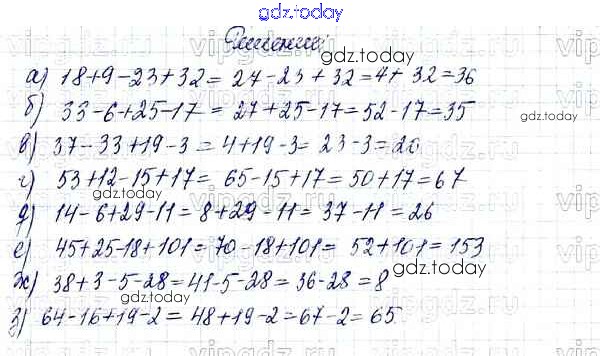 gdz.today
Решение:
gdz.today
а) 18+9-23+32=27-23+32=4+32=36
б) 33-6+25-17=27+25-17=52-17=35
gdz.today
в) 37-33+19-3=4+19-3=23-3=20
г) 53+12-15+17=65-15+17=50+17=67
gdz.today
д) 14-6+29-11=8+29-11=37-11=26
е) 45+25-18+101=70-18+101=52+101=153
gdz.today
ж) 38+3-5-28=41-5-28=36-28=8
gdz.today
з) 64-16+19-2=48+19-2=67-2=65